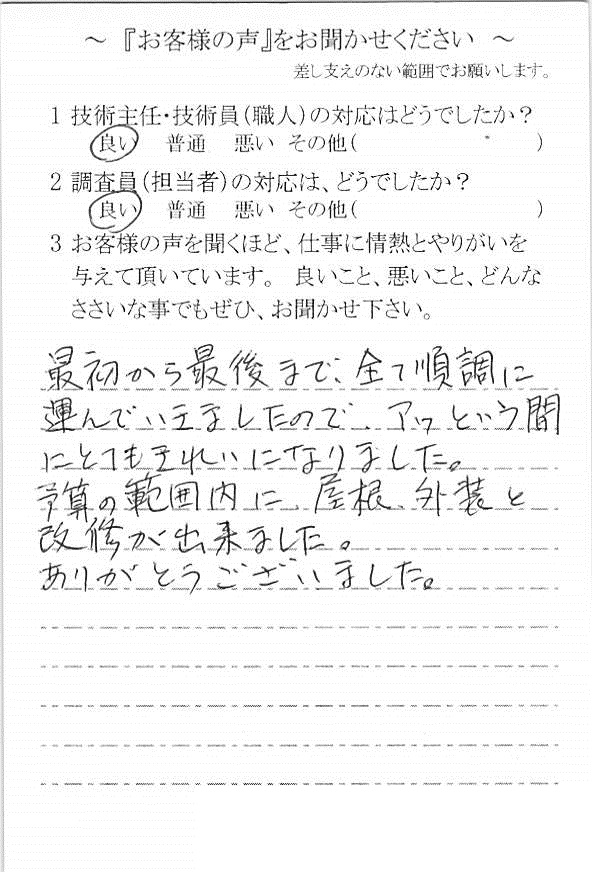 ～ 『お客様の声』をお聞かせください ～
差し支えのない範囲でお願いします。
1 技術主任・技術員（職人）の対応はどうでしたか？
良い 普通 悪い その他（ ）
2 調査員（担当者）の対応は、どうでしたか？
良い 普通 悪い その他（ ）
3 お客様の声を聞くほど、仕事に情熱とやりがいを
与えて頂いています。 良いこと、悪いこと、どんな
ささいな事でもぜひ、お聞かせ下さい。
最初から最後まで、全て順調に
運んでいきましたので、アッという間
にとてもきれいになりました。
予算の範囲内に、屋根、外装と
改修が出来ました。
ありがとうございました。